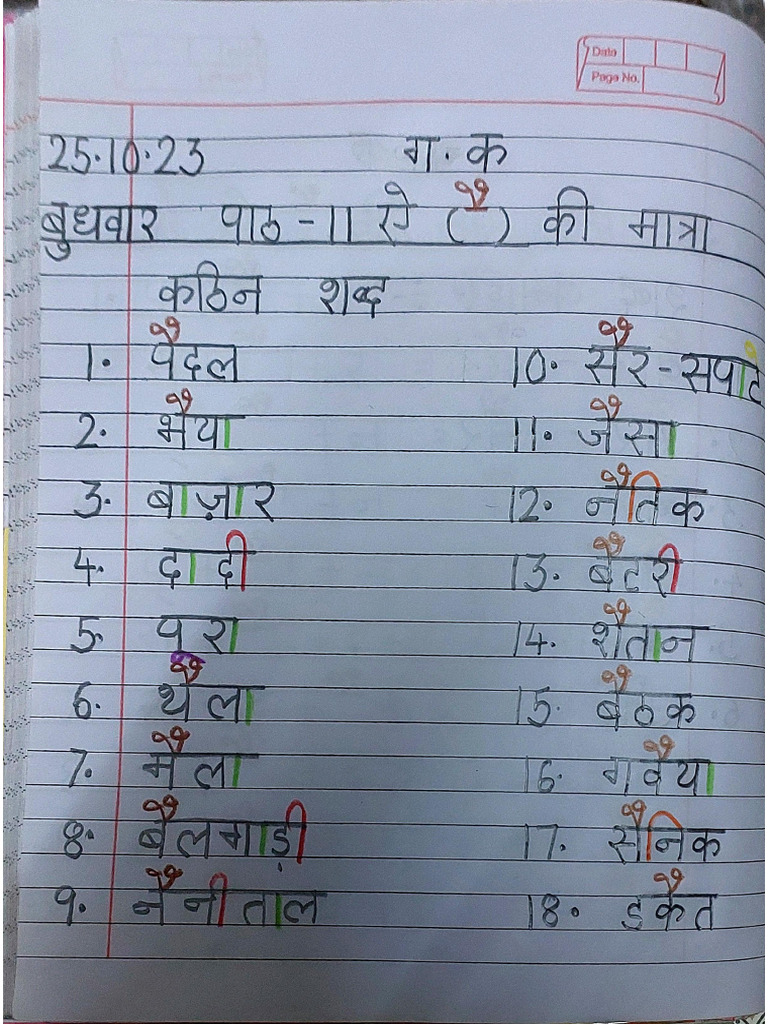 Date
Page No.
25.10.23 ग.क
बुधवार पाठ-11 ऐ (ै) की मात्रा
कठिन शब्द
1. पैदल
2. भैया
3. बाज़ार
4. दादी
5. पूरा
6. थैला
7. मैला
8. बैलगाड़ी
9. नैनीताल
10. सैर-सपाटे
11. जैसा
12. नैतिक
13. बैटरी
14. शैतान
15. बैठक
16. गवैया
17. सैनिक
18. डकैत